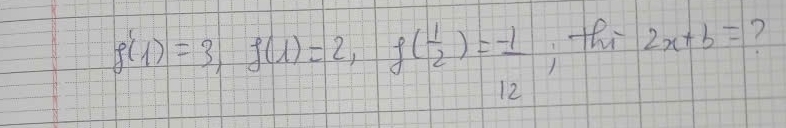 f'(1) = 3, f(1) = 2, f(1/2) = -1/12 ; thì 2x+b = ?